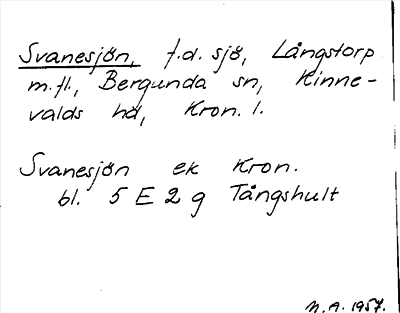 Svanesjön, f.d. sjö, Långstorp
m.fl., Bergunda sn, Kinne-
valds hd, Kron. l.
Svanesjön ek Kron.
bl. 5 E 2 g Tångshult
N.A. 1957.